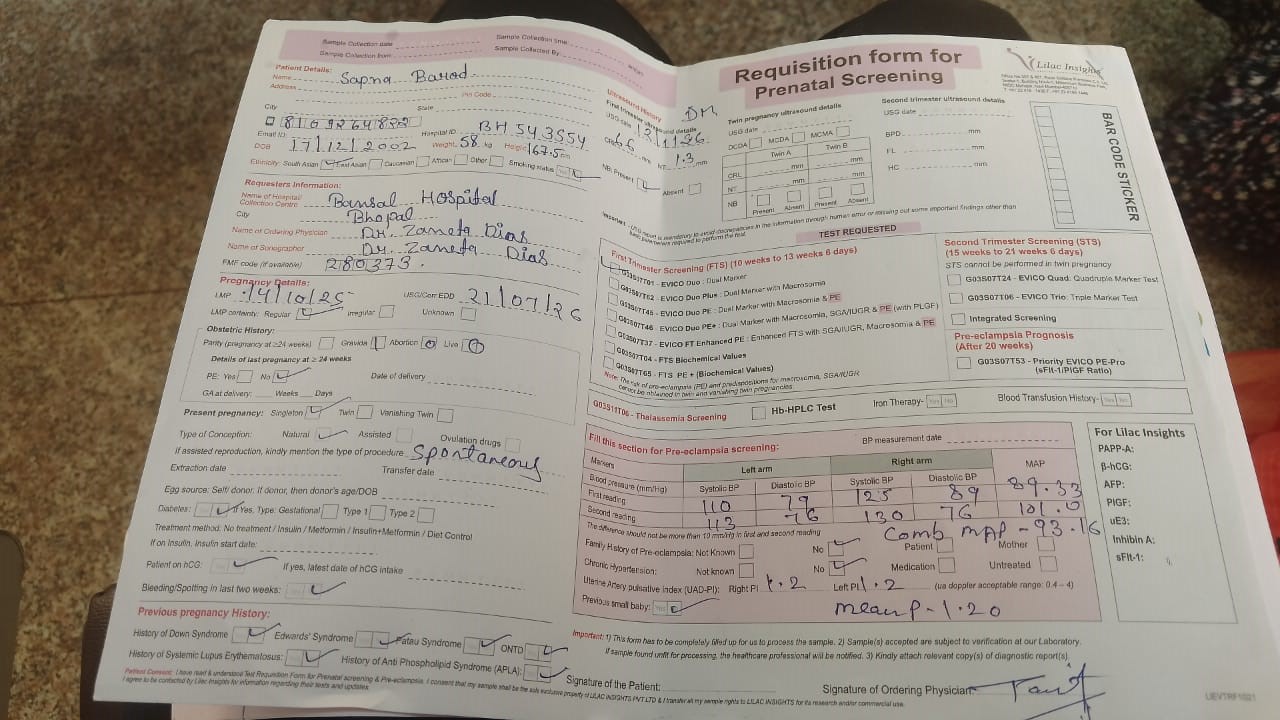 Sample Collection date
Sample Collection time:
Sample Collection from
Sample Collected By:
Patient Details:
Name Sapna Barod
Address
Pin Code
City
State
8109264882
Email ID:
Hospital ID. BH 543554
DOB 17/12/2002 Weight. 58 kg Height 167.5 cm
Ethnicity: South Asian East Asian Caucasian African Other Smoking status
Requesters Information:
Name of Hospital/ Collection Centre Bansal Hospital
City Bhopal
Name of Ordering Physician Dr. Zaneta Dias
Name of Sonographer Dr. Zaneta Dias
FMF code (if available) 280373.
Pregnancy Details:
LMP 14/10/25 USG/Corr EDD 21/07/26
LMP certainty: Regular Irregular Unknown
Obstetric History:
Parity (pregnancy at ≥24 weeks) Gravida Abortion Live
Details of last pregnancy at ≥ 24 weeks
PE: Yes No Date of delivery
GA at delivery: Weeks Days
Present pregnancy: Singleton Twin Vanishing Twin
Type of Conception: Natural Assisted Ovulation drugs
If assisted reproduction, kindly mention the type of procedure Spontaneous
Extraction date Transfer date
Egg source: Self/ donor. If donor, then donor's age/DOB
Diabetes: If Yes, Type: Gestational Type 1 Type 2
Treatment method: No treatment / Insulin / Metformin / Insulin+Metformin / Diet Control
If on Insulin, Insulin start date:
Patient on hCG: If yes, latest date of hCG intake
Bleeding/Spotting in last two weeks:
Previous pregnancy History:
History of Down Syndrome Edwards' Syndrome Patau Syndrome ONTD
History of Systemic Lupus Erythematosus: History of Anti Phospholipid Syndrome (APLA):
Patient Consent: I have read & understood Test Requisition Form for Prenatal screening & Pre-eclampsia. I consent that my sample shall be the sole exclusive property of LILAC INSIGHTS PVT LTD & I transfer all my sample rights to LILAC INSIGHTS for its research and/or commercial use.
I agree to be contacted by Lilac Insights for information regarding their tests and updates.
Signature of the Patient:
Requisition form for
Prenatal Screening
Lilac Insights
Ultrasound History
DM
First trimester ultrasound details
USG date
CRL 66 mm NT 1.3 mm
NB: Present Absent
Twin pregnancy ultrasound details
USG date
DCDA MCDA MCMA
Twin A Twin B
CRL mm mm
NT mm mm
NB Present Absent Present Absent
Second trimester ultrasound details
USG date
BPD mm
FL mm
HC mm
BAR CODE STICKER
TEST REQUESTED
First Trimester Screening (FTS) (10 weeks to 13 weeks 6 days)
G03S07T01 - EVICO Duo : Dual Marker
G03S07T62 - EVICO Duo Plus : Dual Marker with Macrosomia
G03S07T45 - EVICO Duo PE : Dual Marker with Macrosomia & PE
G03S07T46 - EVICO Duo PE+ : Dual Marker with Macrosomia, SGA/IUGR & PE (with PLGF)
G03S07T37 - EVICO FT Enhanced PE : Enhanced FTS with SGA/IUGR, Macrosomia & PE
G03S07T04 - FTS Biochemical Values
G03S07T65 - FTS PE + (Biochemical Values)
Note: The risk of pre-eclampsia (PE) and predispositions for macrosomia, SGA/IUGR cannot be obtained in twin and vanishing twin pregnancies
Second Trimester Screening (STS)
(15 weeks to 21 weeks 6 days)
STS cannot be performed in twin pregnancy
G03S07T24 - EVICO Quad: Quadruple Marker Test
G03S07T06 - EVICO Trio: Triple Marker Test
Integrated Screening
Pre-eclampsia Prognosis
(After 20 weeks)
G03S07T53 - Priority EVICO PE-Pro
(sFlt-1/PIGF Ratio)
G03S11T06 - Thalassemia Screening Hb-HPLC Test Iron Therapy- Yes No Blood Transfusion History- Yes No
Fill this section for Pre-eclampsia screening: BP measurement date
Markers Left arm Right arm MAP
Blood pressure (mm/Hg) Systolic BP Diastolic BP Systolic BP Diastolic BP
First reading 110 79 125 89 89.33
Second reading 113 76 130 76 101.0
The difference should not be more than 10 mm/Hg in first and second reading
Comb MAP - 93.16
Family History of Pre-eclampsia: Not Known No Patient Mother
Chronic Hypertension: Not known No Medication Untreated
Uterine Artery pulsatile index (UAD-PI): Right PI 1.2 Left PI 1.2 (ua doppler acceptable range: 0.4 – 4)
Previous small baby: Yes mean P - 1.20
For Lilac Insights
PAPP-A:
β-hCG:
AFP:
PIGF:
uE3:
Inhibin A:
sFlt-1:
Important: 1) This form has to be completely filled up for us to process the sample. 2) Sample(s) accepted are subject to verification at our Laboratory.
If sample found unfit for processing, the healthcare professional will be notified. 3) Kindly attach relevant copy(s) of diagnostic report(s).
Signature of Ordering Physician
LIEVTRF1021